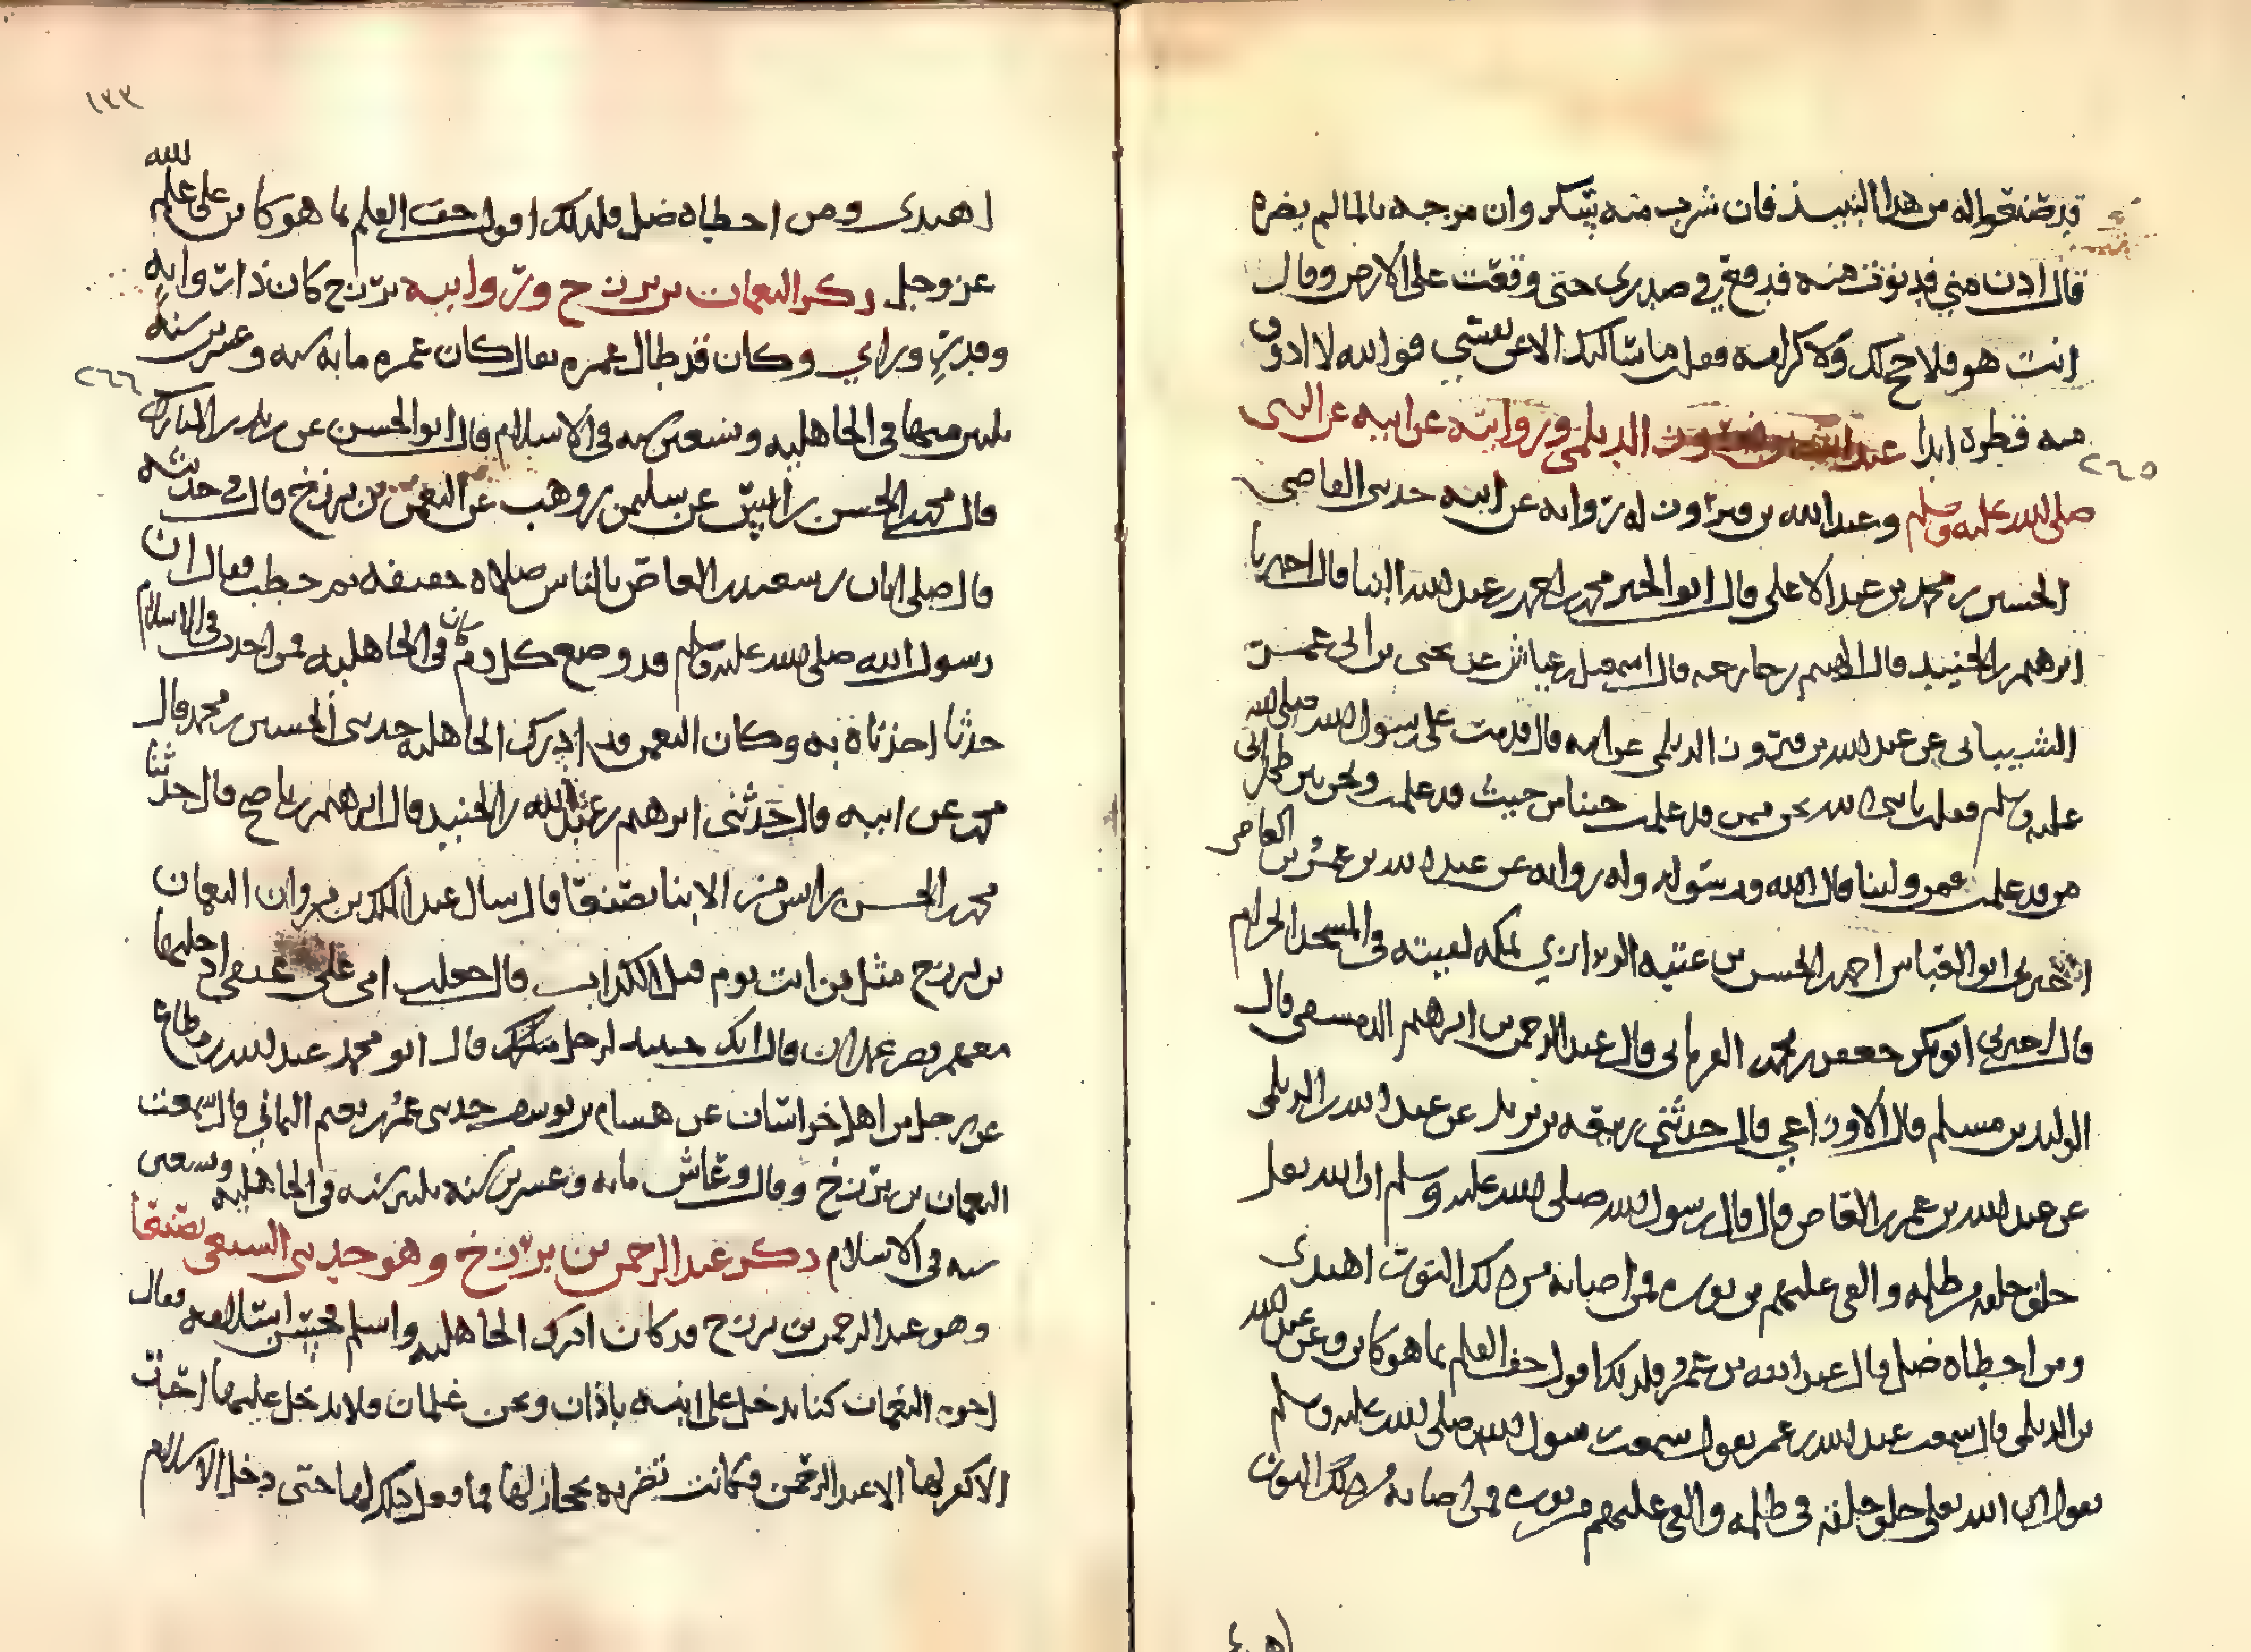 من هذا النبيذ فان شرب منه يسكر وان مزجه بالما لم يضره
قال ادن مني فدنوت منه فدفع في صدري حتى وقعت على الارض وقال
انت هو فلا حج لك ولا كرامة فقلت ما شانك الا عن نفسي فوالله لا اذوق
منه قطرة ابدا عبد الله بن فيروز الديلمي وروايته عن ابيه عن النبي
٢٦٥
صلى الله عليه وسلم وعبد الله بن فيروز له رواية عن ابيه حدثني القاضي
الحسين بن محمد بن عبد الاعلى قال ابو الخير محمد بن احمد بن عبد الله البنا قال اخبرنا
ابرهيم بن الجنيد قال الهيثم بن خارجة قال اسمعيل بن عياش عن يحيى بن ابي عمرو
الشيباني عن عبد الله بن فيروز الديلمي عن ابيه قال قدمت على رسول الله صلى الله
عليه وسلم فقلت يا نبي الله نحن ممن قد علمت جينا من حيث قد علمت ونحن بين ظهراني
من قد علمت فمن ولينا قال الله ورسوله وله رواية عن عبد الله بن عمرو بن العاص
اخبرني ابو العباس احمد بن الحسن بن عتبة الرازي بمكة لقيته في المسجد الحرام
قال اخبرني ابو بكر جعفر بن محمد الفريابي قال عبد الرحمن بن ابرهيم الدمشقي قال
الوليد بن مسلم قال الاوزاعي قال حدثني ربيعة بن يزيد عن عبد الله بن الديلمي
عن عبد الله بن عمرو بن العاص قال قال رسول الله صلى الله عليه وسلم ان الله تعلى
خلق خلقه في ظلمة والقى عليهم من نوره فمن اصابه من ذلك النور اهتدى
ومن اخطاه ضل قال عبد الله بن عمرو فلذلك اقول جف القلم بما هو كاين وعن عبد الله
بن الديلمي قال سمعت عبد الله بن عمر يقول سمعت رسول الله صلى الله عليه وسلم
يقول ان الله تعلى خلق خلقه في ظلمة والقى عليهم من نوره فمن اصابه من ذلك النور
١٣٣
اهتدى ومن اخطاه ضل فلذلك اقول جف القلم بما هو كاين على علم الله
عز وجل ذكر النعمان بن برزخ وروايته برزخ كان ذا رواية
وقدر وراي وكان قد طال عمره يقال كان عمره ماية سنة وعشرين سنة
٢٦٦
ثلثين منها في الجاهلية وتسعين سنة في الاسلام قال ابو الحسن عن زيد بن المبارك
قال محمد بن الحسن بن اتش عن سليمن بن وهب عن النعمن بن برزخ قال في حديثه
قال صلى ابان بن سعيد بن العاص بالناس صلاة خفيفة ثم خطب فقال ان
رسول الله صلى الله عليه وسلم قد وضع كل دم كان في الجاهلية فمن احدث في الاسلام
حدثا اخذناه به وكان النعمن قد ادرك الجاهلية حدثني الحسين بن محمد قال
محمد عن ابيه قال حدثني ابرهيم بن عبد الله بن الجنيد قال ابرهيم بن صالح قال حدثنا
محمد بن الحسن بن اتش من الابنا بصنعا قال سال عبد الملك بن مروان النعمان
بن برزخ مثل من انت يوم قتل الكذاب قال جعلت امي على عنقي احليها
معهم بقصر غمدان قال انك حينيذ لرجل قال ابو محمد عبد الله بن مطاع
عن رجل من اهل خراسان عن هشام بن يوسف حدثني عمر بن نعيم اليماني قال سمعت
النعمان بن برزخ وقال وعاش ماية وعشرين سنة ثلثين سنة في الجاهلية وتسعين
سنة في الاسلام ذكر عبد الرحمن بن برزخ وهو حديثي بصنعا
وهو عبد الرحمن بن برزخ قد كان ادرك الجاهلية واسلم فحسن اسلامه فقال
اخوه النعمان كنا ندخل على ابنة باذان ونحن غلمان فلا يدخل عليها احد
الا كفر لها الا عبد الرحمن فكانت تضربه فما فعل ذلك لها حتى دخل الاسلام